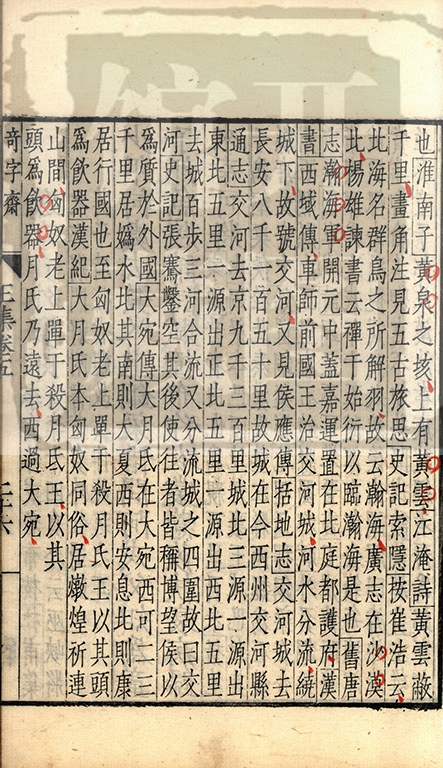 也淮南子黃泉之埃上有黃雲江淹詩黃雲蔽
千里畫角注見五古旅思史記索隱按崔浩云
北海名群鳥之所解羽故云瀚海廣志在沙漠
北揚雄諫書云禪于始衍以臨瀚海是也舊唐
志瀚海軍開元中蓋嘉運置在北庭都護府漢
書西域傳車師前國王治交河城河水分流繞
城下故號交河又見侯應傳括地志交河城去
長安八千一百五十里故城在今西州交河縣
通志交河去京九千三百里城北三源一源出
東北五里一源出正北五里一源出西北五里
去城百步三河合流又分流城之四圍故曰交
河史記張騫鑿空其後使往者皆稱博望侯以
爲質於外國大宛傳大月氏在大宛西可二三
千里居嬀水北其南則大夏西則安息北則康
居行國也至匈奴老上單于殺月氏王以其頭
爲飲器漢紀大月氏本匈奴同俗居燉煌祈連
山間匈奴老上單于殺月氏王以其
頭爲飲器月氏乃遠去西過大宛
奇字齋
王集卷五
二十六